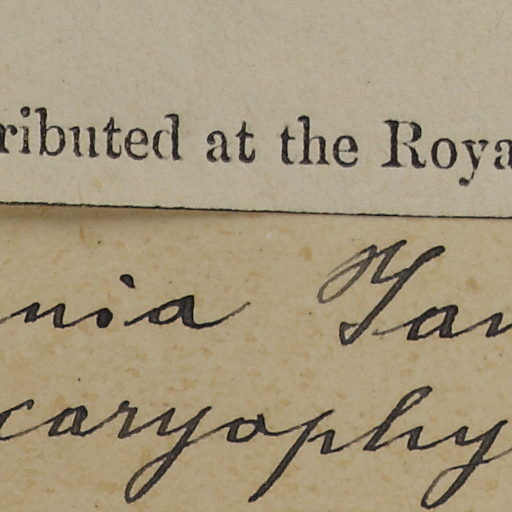 ributed at the Roya
nia Tan
caryophy